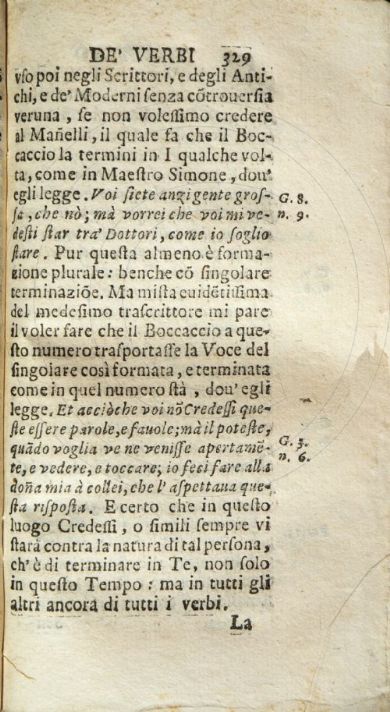 DE' VERBI 329
vſo poi negli Scrittori, e degli Anti-
chi, e de' Moderni ſenza cõtrouerſia
veruna, ſe non voleſſimo credere
al Mañelli, il quale fa che il Boc-
caccio la termini in I qualche vol-
ta, come in Maeſtro Simone, dou'
egli legge. Voi ſiete anzi gente groſ- G. 8.
ſa, che nò; mà vorrei che voi mi ve- n. 9.
deſti ſtar tra' Dottori, come io ſoglio
ſtare. Pur queſta almeno è forma-
zione plurale: benche cõ ſingolare
terminaziõe. Ma miſta euidẽtiſſima
del medeſimo traſcrittore mi pare
il voler fare che il Boccaccio a que-
ſto numero traſportaſſe la Voce del
ſingolare così formata, e terminata
come in quel numero ſtà, dou' egli
legge. Et acciòche voi nõ Credeſſi que-
ſte eſſere parole, e fauole; mà il poteſte, G. 3.
quãdo voglia ve ne veniſſe apertamẽ- n. 6.
te, e vedere, e toccare; io feci fare alla
doña mia à collei, che l' aſpettaua que-
ſta riſpoſta. E certo che in queſto
luogo Credeſſi, o ſimili ſempre vi
ſtarà contra la natura di tal perſona,
ch' è di terminare in Te, non ſolo
in queſto Tempo: ma in tutti gli
altri ancora di tutti i verbi.
La